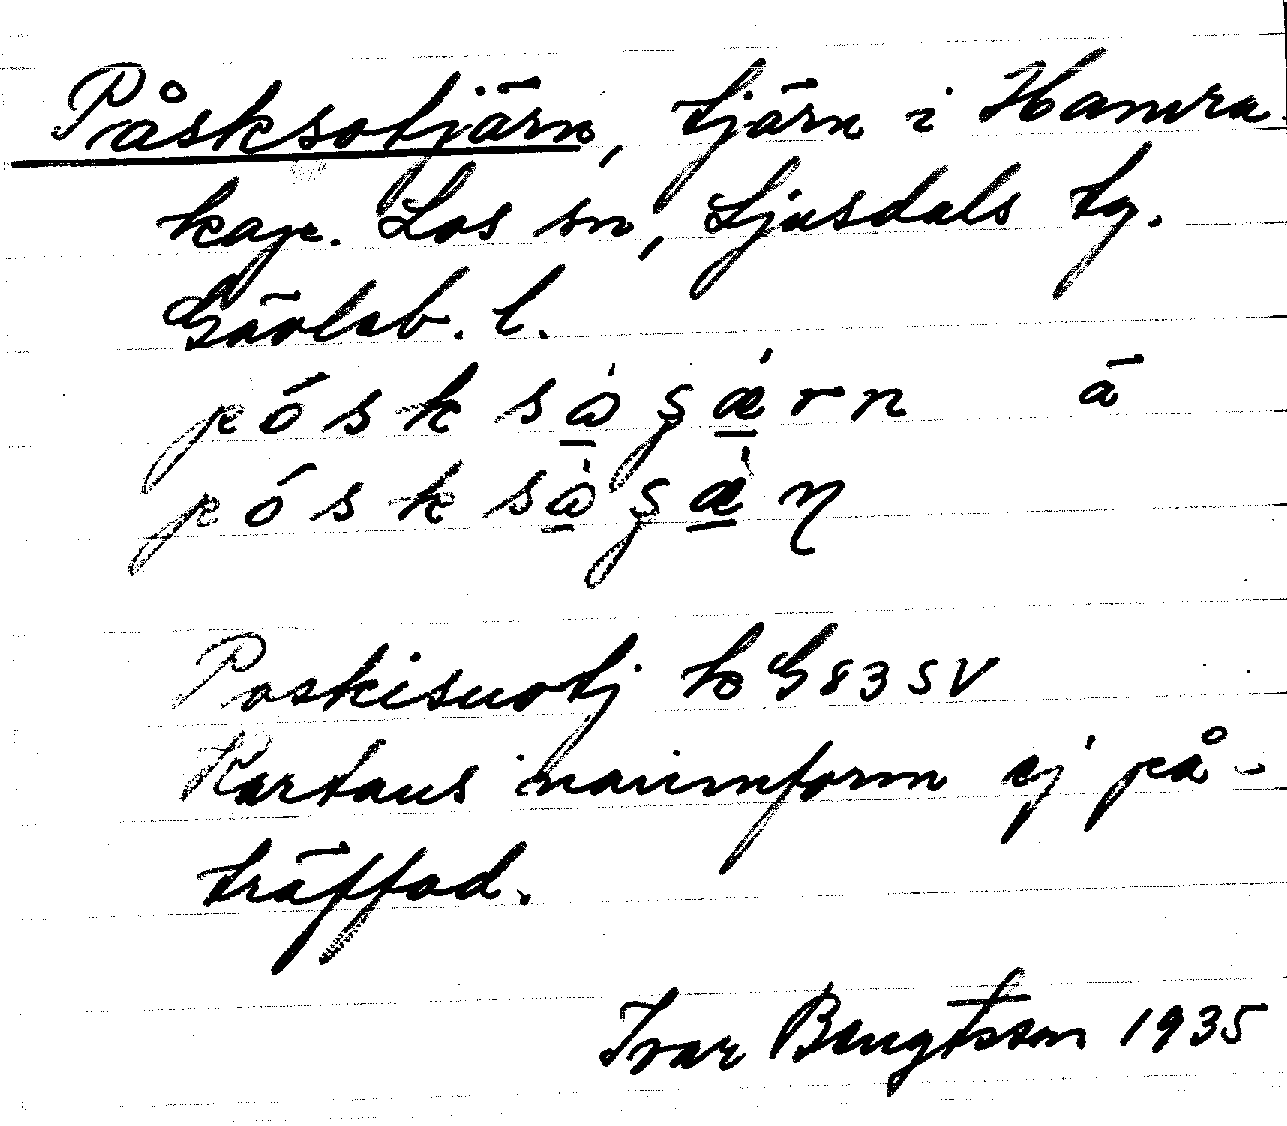 Påsksotjärn, tjärn i Hamra
kap. Los sn, Ljusdals tg.
Gävleb. l.
pósksὰʂǽrn ā
pósksὰʂæ̀ɳ
Poskisuotj to G 83 SV
Kartans namnform ej på-
träffad.
Ivar Bengtsson 1935